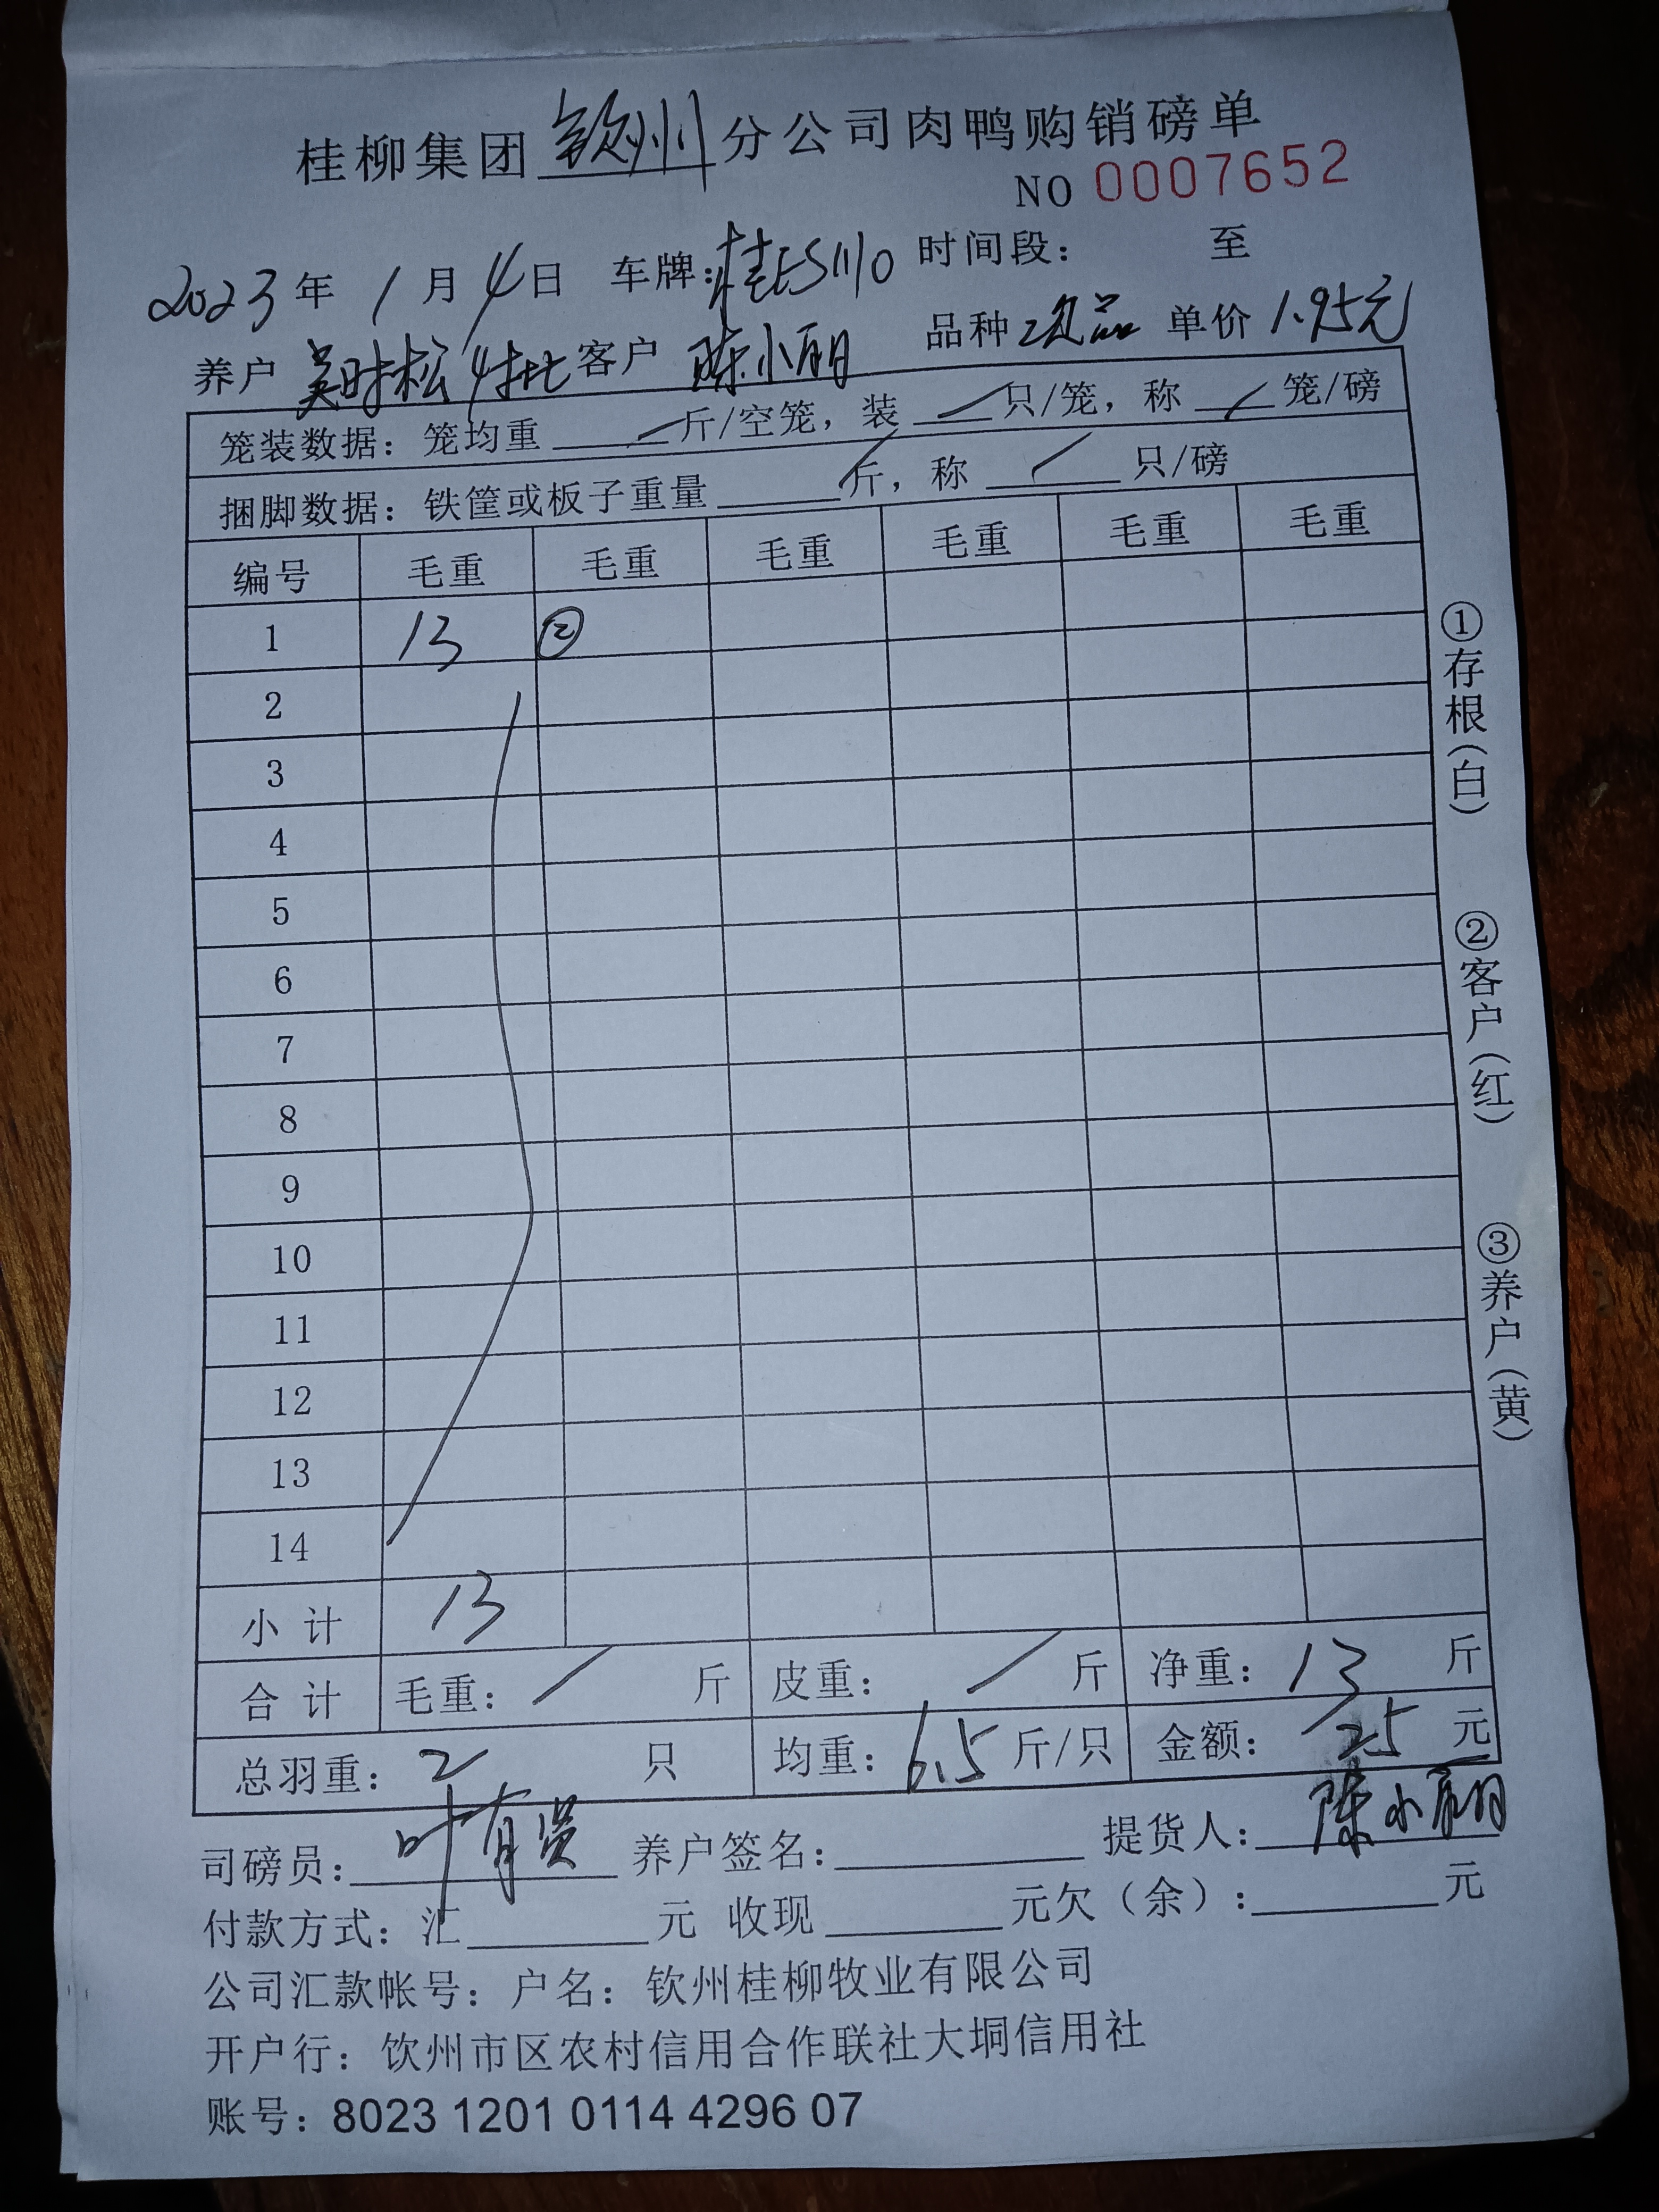 桂柳集团 钦州 分公司肉鸭购销磅单
NO 0007652
2023年 1月 4日 车牌: 桂ES1110 时间段: 至
养户 吴时松 4批 客户 陈小丽 品种 次品 单价 1.95元
笼装数据: 笼均重 / 斤/空笼, 装 / 只/笼, 称 / 笼/磅
捆脚数据: 铁筐或板子重量 / 斤, 称 / 只/磅
编号 毛重 毛重 毛重 毛重 毛重 毛重
1 13 ②
2
3
4
5
6
7
8
9
10
11
12
13
14
小 计 13
合 计 毛重: / 斤 皮重: / 斤 净重: 13 斤
总羽重: 2 只 均重: 6.5 斤/只 金额: 25 元
司磅员: 叶有贤 养户签名: 提货人: 陈小丽
付款方式: 汇 元 收现 元欠（余）: 元
公司汇款帐号: 户名: 钦州桂柳牧业有限公司
开户行: 钦州市区农村信用合作联社大垌信用社
账号: 8023 1201 0114 4296 07
①存根（白）
②客户（红）
③养户（黄）